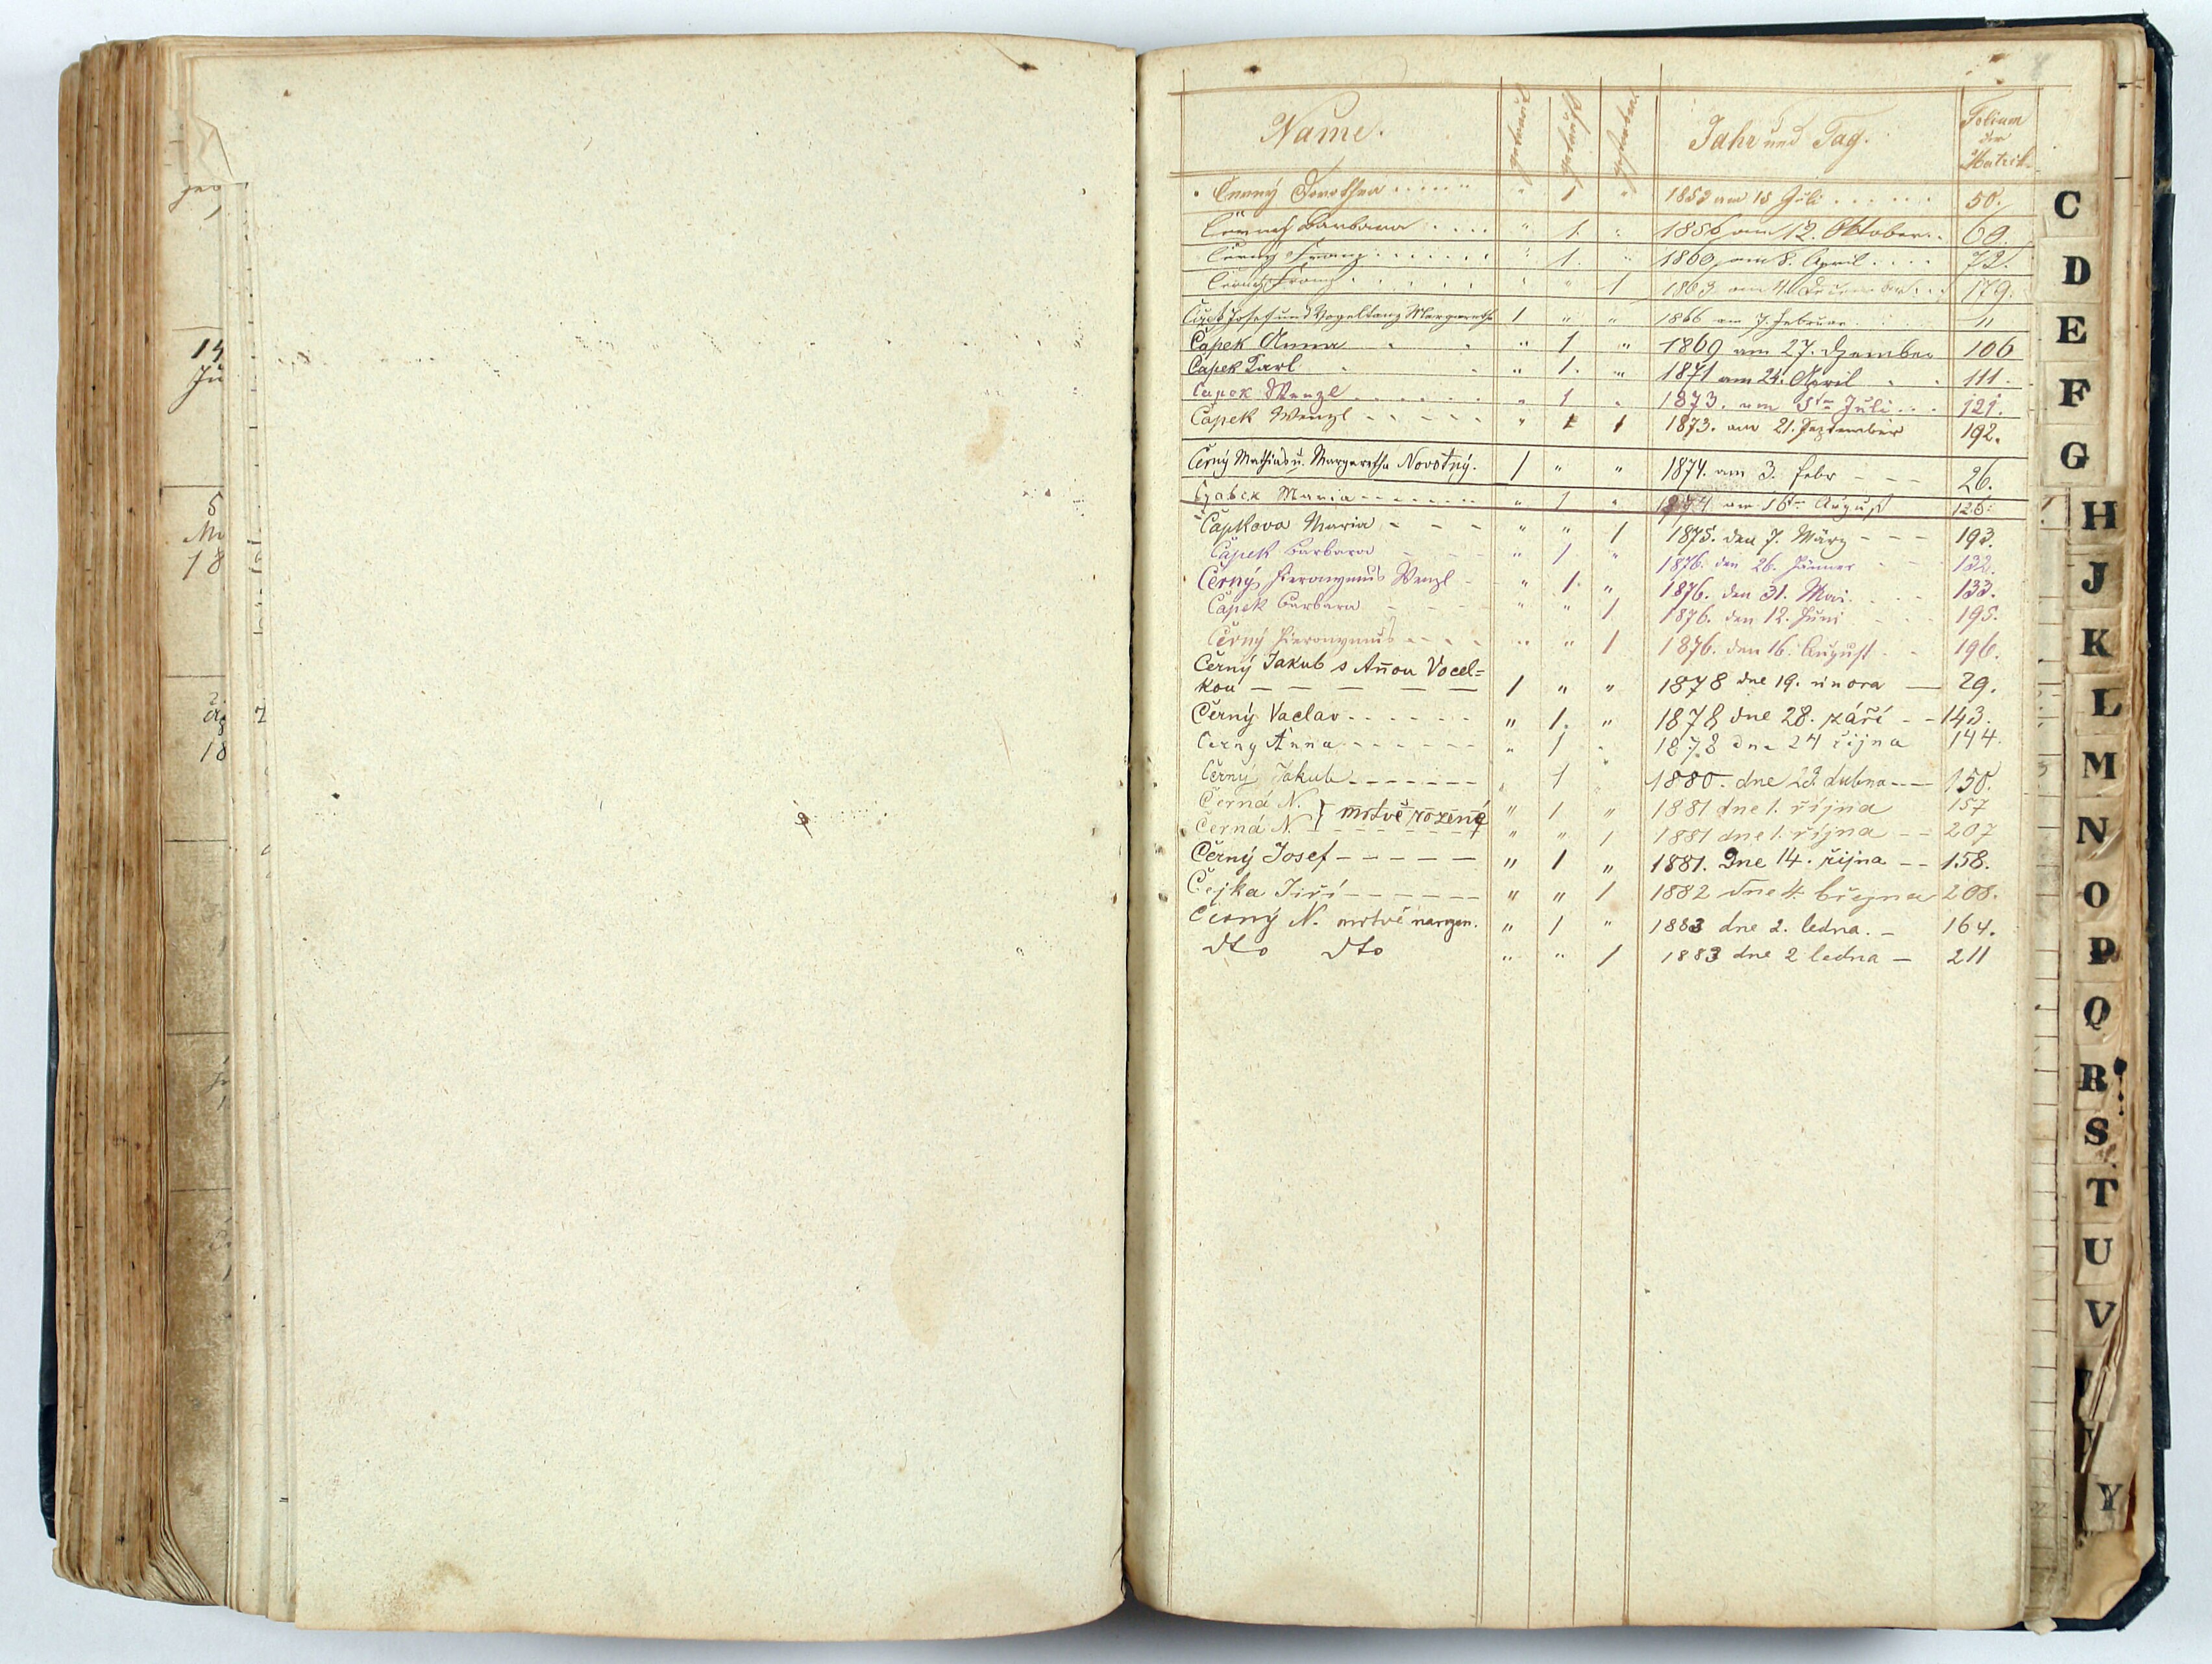 14
Ju
5
18
18
Name. getraut getauft gestorben Jahr und Tag. Folium der Matrik
Černý Dorothea . . . . . " 1 " 1852 am 15 Juli . . . . . 50.
Černý Barbara . . . . " 1. " 1856 am 12. Oktober . . 60.
Černý Franz . . . . . . . " 1. " 1860 am 8. April . . . . 72.
Černý Franz . . . . . . " " 1 1863 am 4. Dezember . . . 179.
Čížek Josef und Vogeltanz Margaretha 1 " " 1866 am 7. Februar . 11
Čapek Anna . . " 1 " 1869 am 27. Dzember 106
Čapek Karl . . " 1. " 1871 am 24. April . . 111.
Čapek Wenzl . . . . . . " 1 " 1873. am 5ten Juli . . . 121.
Čapek Wenzl - - - - - " 1 1 1873. am 21. September 192.
Černý Mathias u. Margaretha Novotný. 1 " " 1874. am 3. febr - - - 26.
Czabek Maria - - - - - - - " 1 " 1874 am 16ten August 126.
Čapkova Maria - - - " " 1 1875. den 7. März - - - 193.
Čapek Barbara - - - " 1 " 1876. den 26. Jänner - - 132.
Černý Hieronymus Wenzl - - " 1. " 1876. den 31. Mai. - - 133.
Čapek Barbara - - - " " 1 1876. den 12. Juni - - 195.
Černý Hieronymus - - - - " " 1 1876. den 16. August. - 196.
Černý Jakub s Annou Vocel=
kou — — — — — 1 " " 1878 dne 19. února — 29.
Černý Vaclav - - - - - - " 1. " 1878 dne 28. září - - 143.
Černy Anna - - - - - - " 1 " 1878 dne 24 října 144.
Černý Jakub - - - - - - - " 1 " 1880. dne 29. dubna - - - 150.
Černá N. } mrtvě rozené " 1 " 1881 dne 1. října 157
Černá N. - - - - - - " " 1 1881 dne 1. října - - 207
Černý Josef - - - - - " 1 " 1881. Dne 14. října - - 158.
Čejka Jiří - - - - - " " 1 1882 dne 4. března 208.
Černý N. mrtvě narozen. " 1 " 1883 dne 2. ledna. - 164.
dto dto " " 1 1883 dne 2 ledna - 211
C
D
E
F
G
H
J
K
L
M
N
O
P
Q
R
S
T
U
V
Y